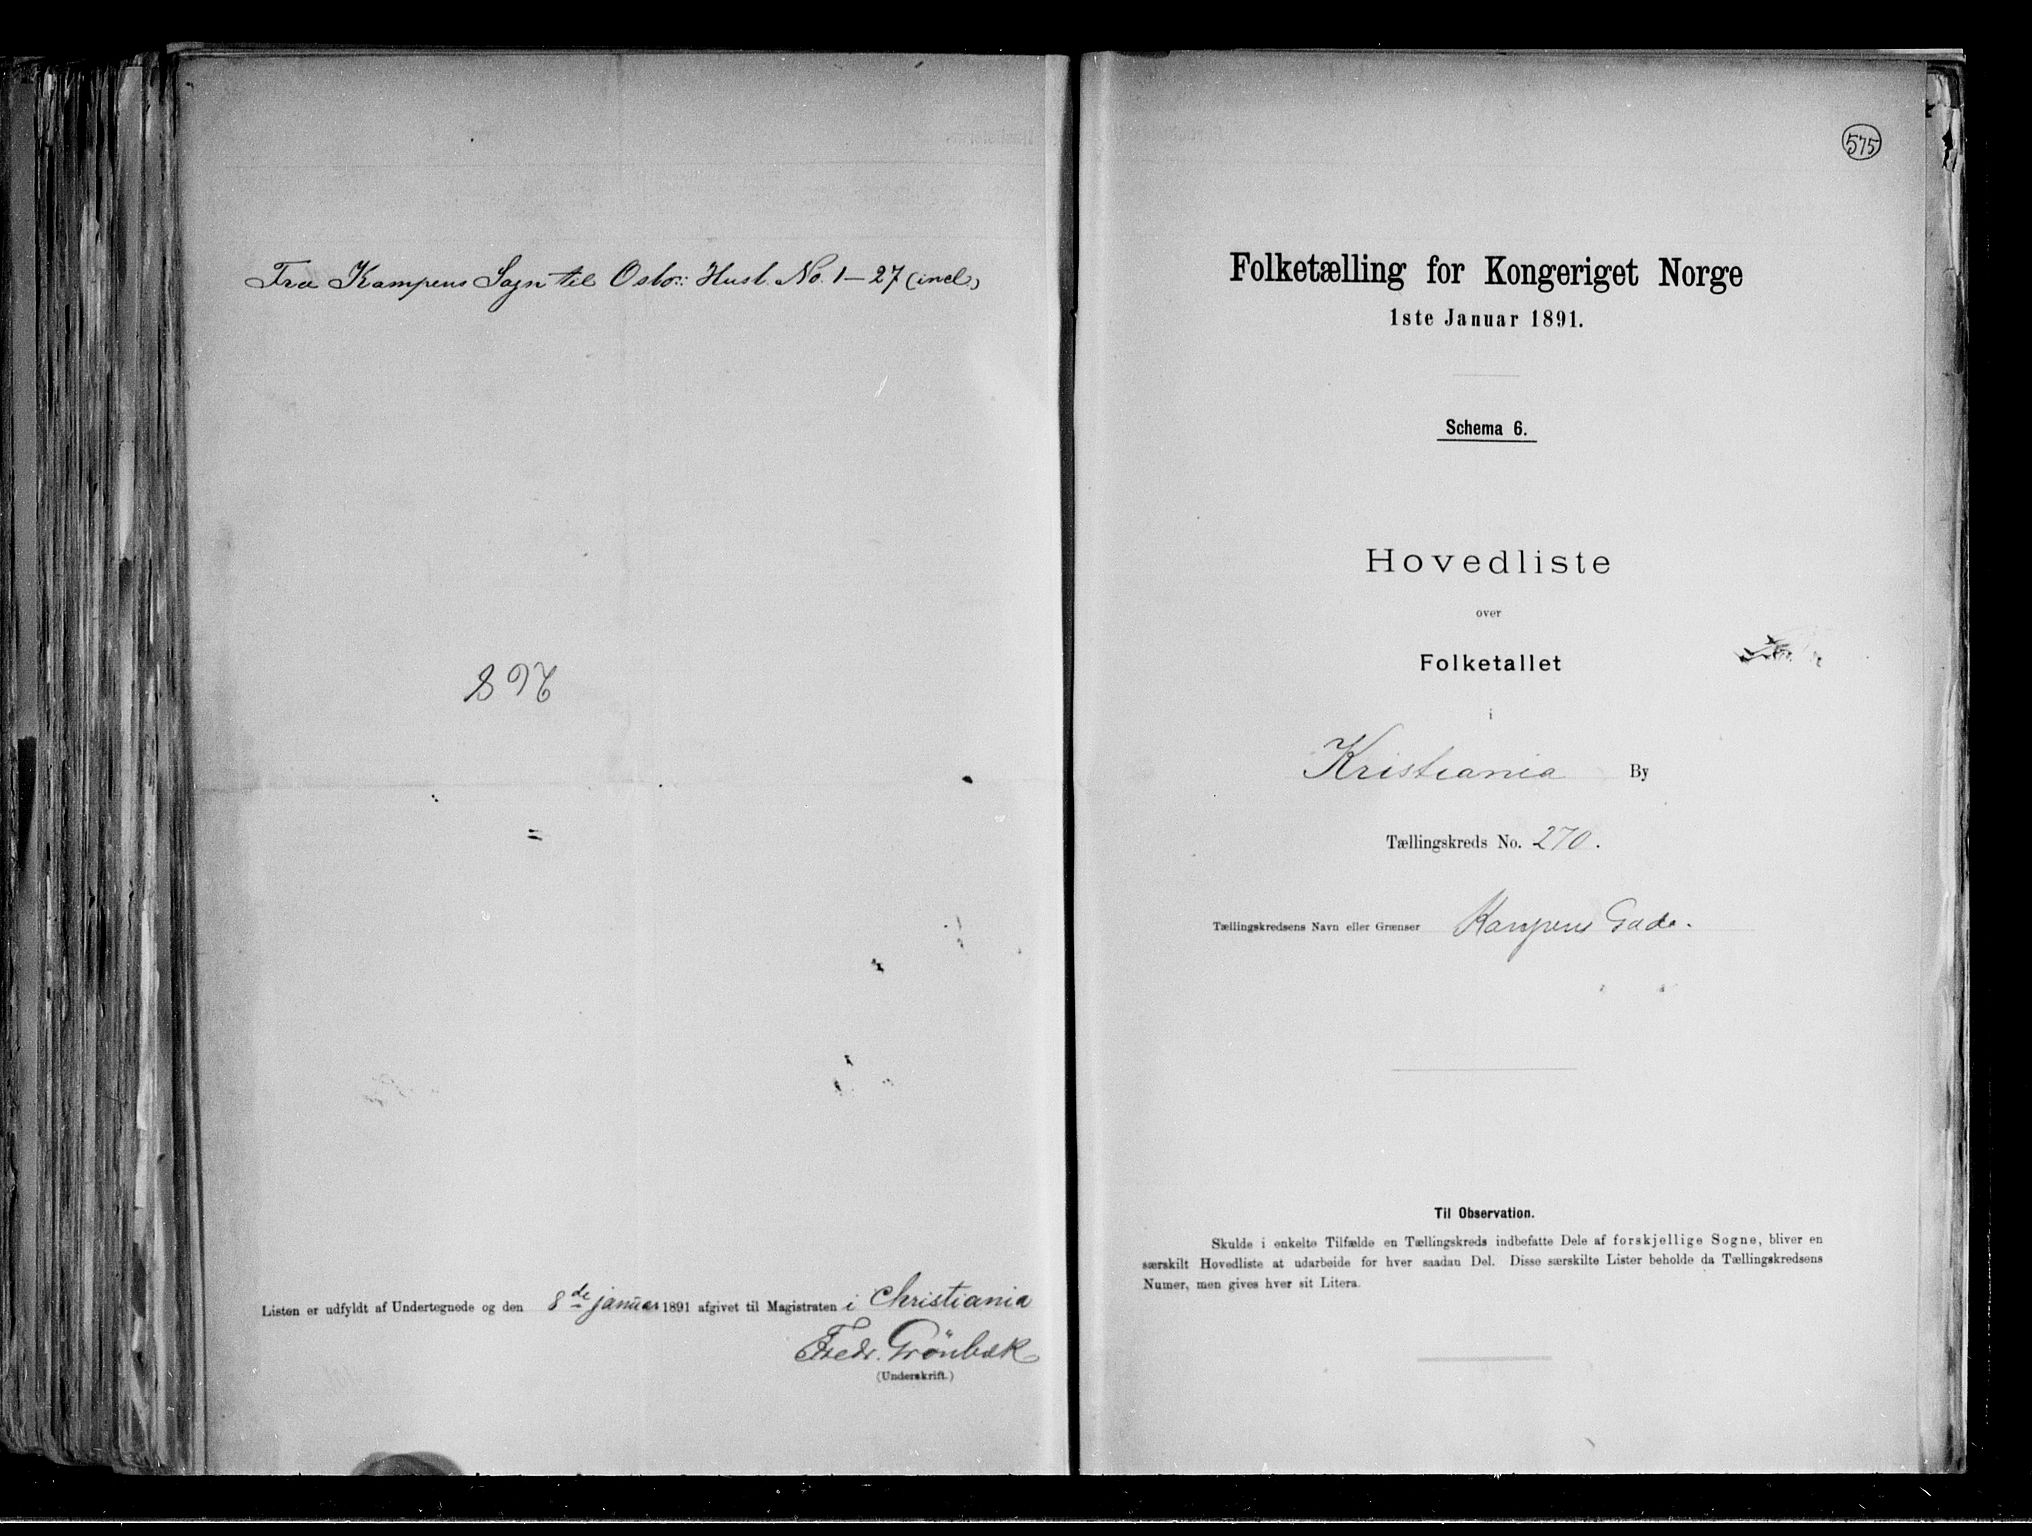 Fra Kampens Sogn til Oslo: Husl. No. 1–27 (incl.)
Listen er udfyldt af Undertegnede og den 8de januar 1891 afgivet til Magistraten i Christiania
Fredr. Grönbæk
(Underskrift.)
575
Folketælling for Kongeriget Norge
1ste Januar 1891.
Schema 6.
Hovedliste
over
Folketallet
i
Kristiania By
Tællingskreds No. 270.
Tællingskredsens Navn eller Grænser Kampens Gade.
Til Observation.
Skulde i enkelte Tilfælde en Tællingskreds indbefatte Dele af forskjellige Sogne, bliver en
særskilt Hovedliste at udarbeide for hver saadan Del. Disse særskilte Lister beholde da Tællingskredsens
Numer, men gives hver sit Litera.